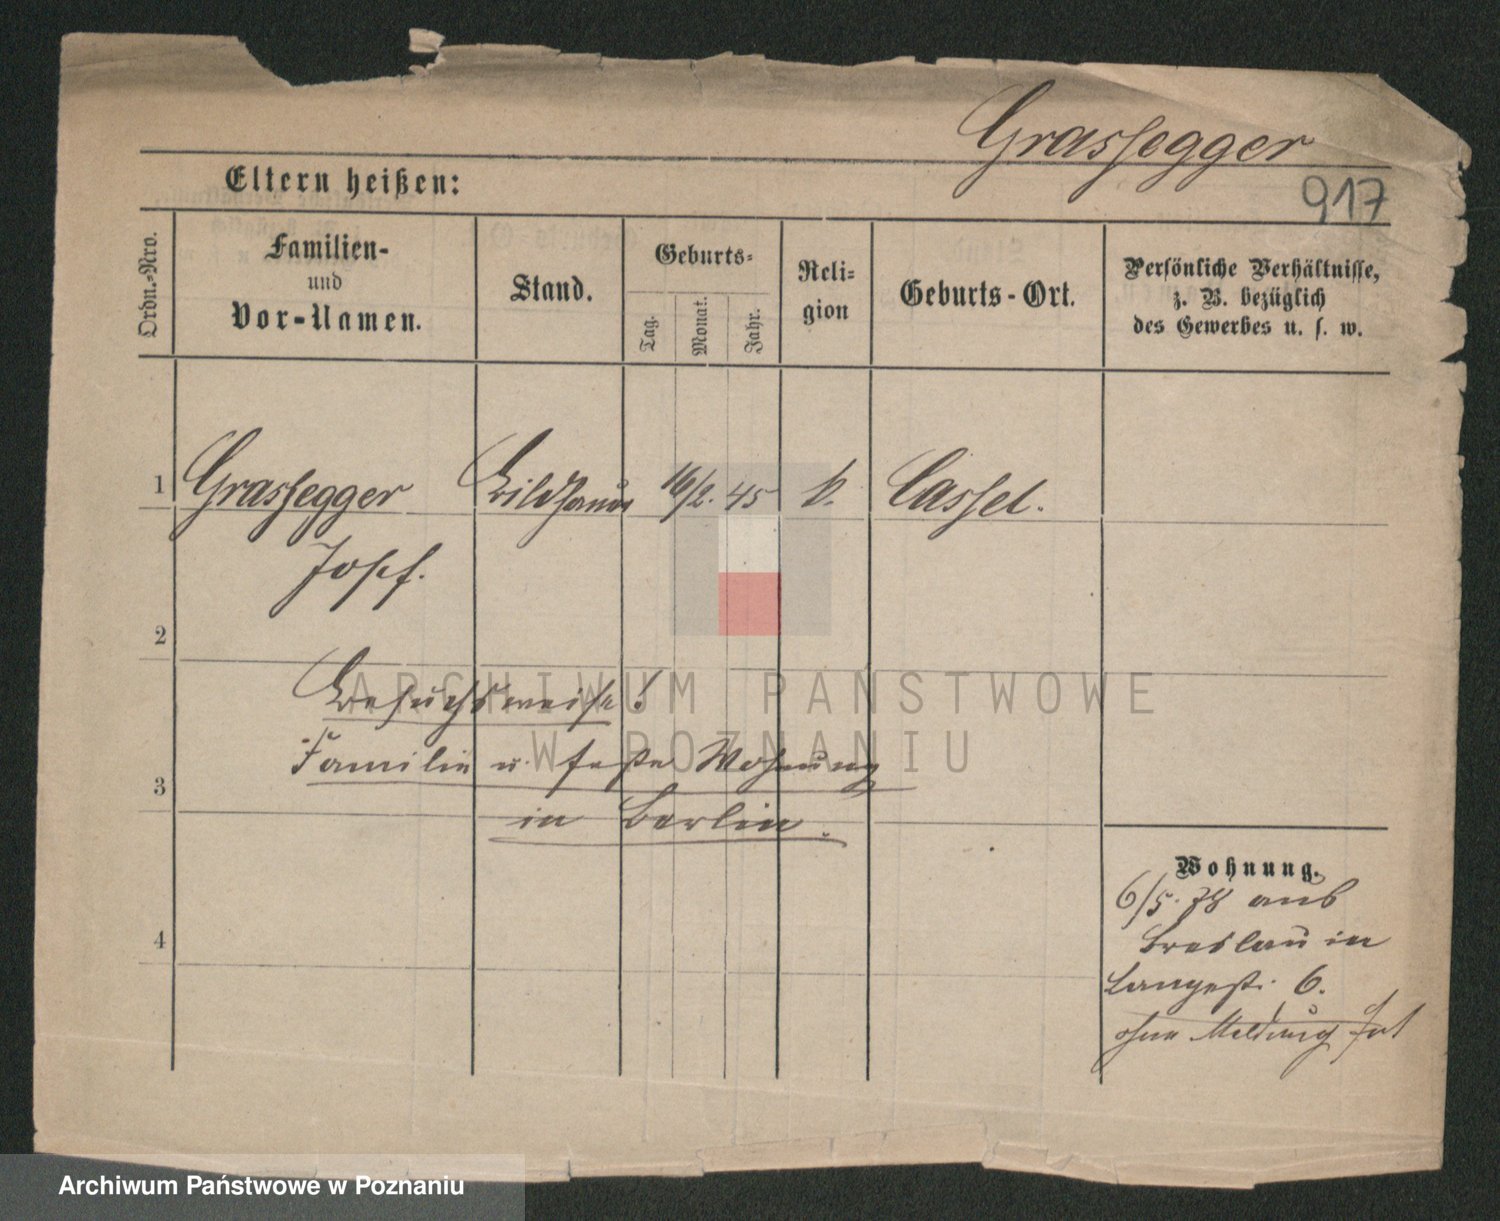 Grassegger
Eltern heißen:
917
Ordn.-Nro.
Familien-
und
Vor-Namen.
Stand.
Geburts-
Tag.
Monat.
Jahr.
Reli-
gion
Geburts-Ort.
Persönliche Verhältnisse,
z. B. bezüglich
des Gewerbes u. s. w.
1 Grassegger Bildhauer 16/2. 45 k. Cassel.
Josef.
2
Besuchsweise!
Familie u. feste Wohnung
3
in Berlin.
Wohnung.
6/5. 78 aus
Breslau in
4
Langestr. 6.
ohne Meldung fort
ARCHIWUM PAŃSTWOWE
W POZNANIU
Archiwum Państwowe w Poznaniu